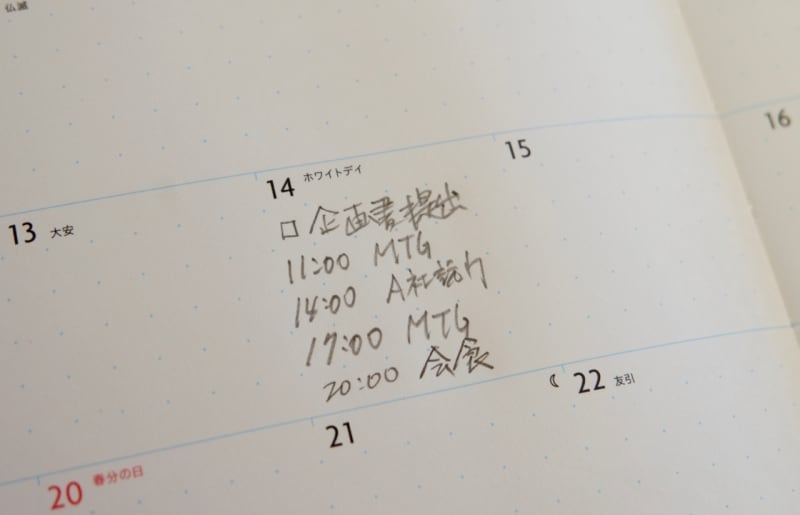 仏滅
13 大安
14 ホワイトデイ
□ 企画書提出
11:00 MTG
14:00 A社訪問
17:00 MTG
20:00 会食
15
16
20 春分の日
21
22 友引